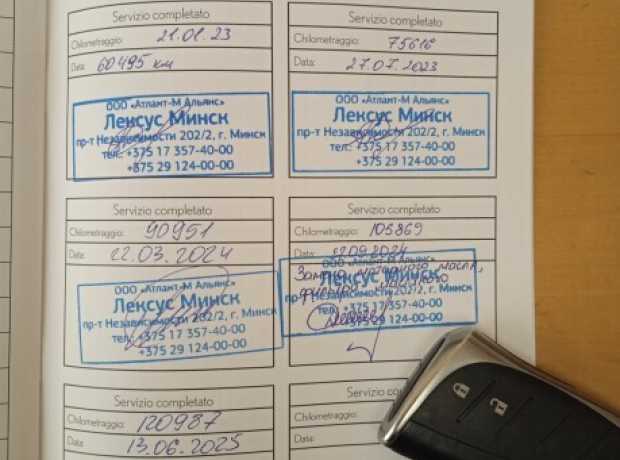 Servizio completato
Chilometraggio: 21.01.23
Data: 60495 км
ООО «Атлант-М Альянс»
Лексус Минск
пр-т Независимости 202/2, г. Минск
тел.: +375 17 357-40-00
+375 29 124-00-00
Servizio completato
Chilometraggio: 75616
Data: 27.07.2023
ООО «Атлант-М Альянс»
Лексус Минск
пр-т Независимости 202/2, г. Минск
тел.: +375 17 357-40-00
+375 29 124-00-00
Servizio completato
Chilometraggio: 90951
Data: 22.03.2024
ООО «Атлант-М Альянс»
Лексус Минск
пр-т Независимости 202/2, г. Минск
тел.: +375 17 357-40-00
+375 29 124-00-00
Servizio completato
Chilometraggio: 105869
Data: 09.2024
Замена моторного масла,
фильтра масляного
ООО «Атлант-М Альянс»
Лексус Минск
пр-т Независимости 202/2, г. Минск
тел.: +375 17 357-40-00
+375 29 124-00-00
Servizio completato
Chilometraggio: 120987
Data: 13.06.2025
Servizio co
Chilometraggio:
Data: